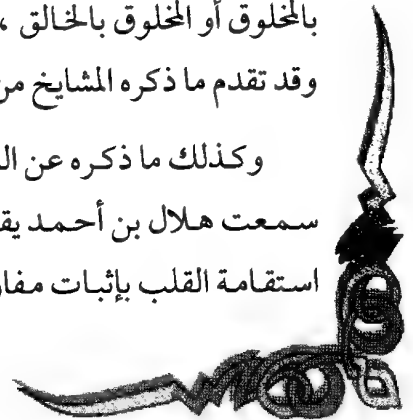 بالمخلوق أو المخلوق بالخالق ،
وقد تقدم ما ذكره المشايخ من
وكذلك ما ذكره عن
سمعت هلال بن أحمد
استقامة القلب بإثبات